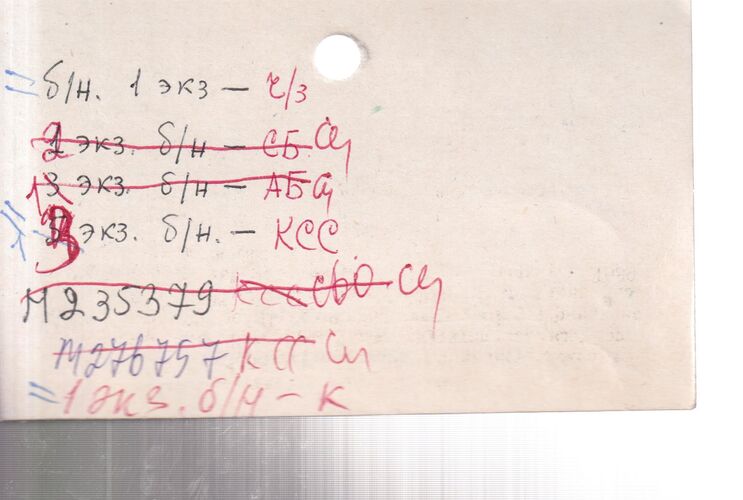 б/н. 1 экз – ч/з
2 экз. б/н – СБ Сц
3 экз. б/н – АБ Сц
3 экз. б/н. – КСС
М235379 КСС СЬО Сц
М276757 КСС Сц
= 1 экз. б/н – К